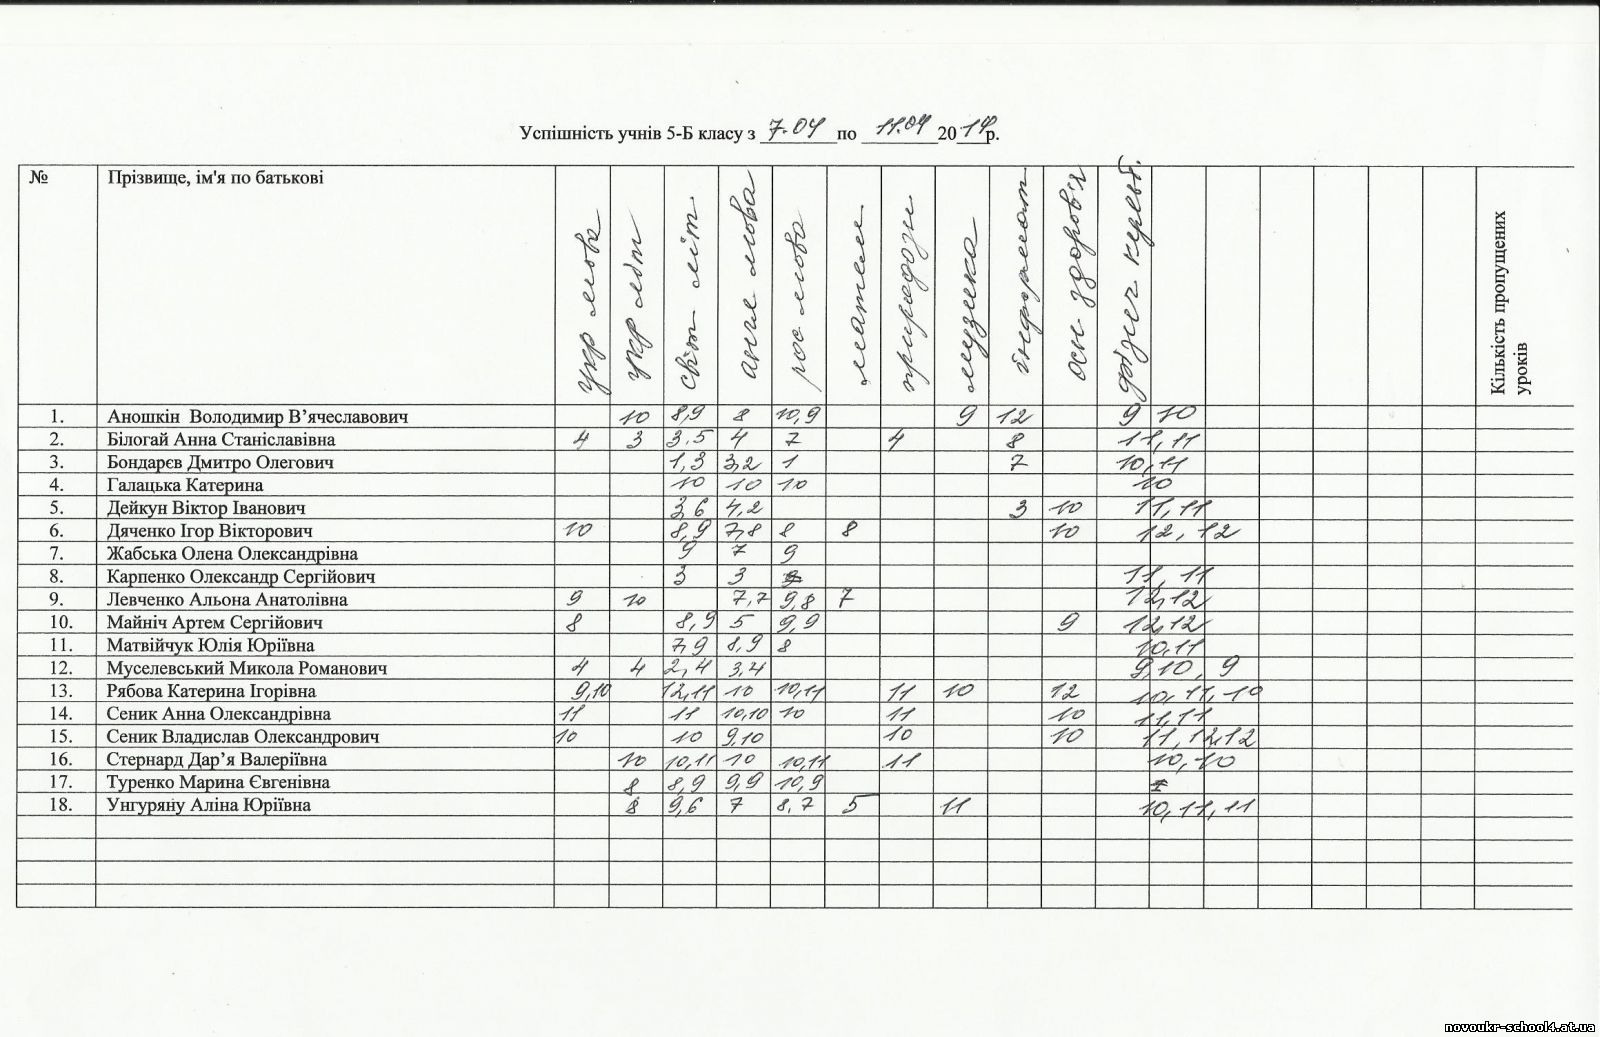 Успішність учнів 5-Б класу з 7.04 по 11.04 2014р.
№ Прізвище, ім'я по батькові укр мова укр літ світ літ англ мова рос мова матем природозн музика інформат осн здоров'я фізич культ. Кількість пропущених уроків
1. Аношкін Володимир В’ячеславович 10 8,9 8 10,9 9 12 9 10
2. Білогай Анна Станіславівна 4 3 3,5 4 7 4 8 11,11
3. Бондарєв Дмитро Олегович 1,3 3,2 1 7 10,11
4. Галацька Катерина 10 10 10 10
5. Дейкун Віктор Іванович 3,6 4,2 3 10 11,11
6. Дяченко Ігор Вікторович 10 8,9 7,8 8 8 10 12, 12
7. Жабська Олена Олександрівна 9 7 9
8. Карпенко Олександр Сергійович 3 3 11, 11
9. Левченко Альона Анатолівна 9 10 7,7 9,8 7 12,12
10. Майніч Артем Сергійович 8 8,9 5 9,9 9 12,12
11. Матвійчук Юлія Юріївна 7,9 8,9 8 10,11
12. Муселевський Микола Романович 4 4 2,4 3,4 9,10, 9
13. Рябова Катерина Ігорівна 9,10 12,11 10 10,11 11 10 12 10,11,10
14. Сеник Анна Олександрівна 11 11 10,10 10 11 10 11,11
15. Сеник Владислав Олександрович 10 10 9,10 10 10 11,12,12
16. Стернард Дар’я Валеріївна 10 10,11 10 10,11 11 10,10
17. Туренко Марина Євгенівна 8 8,9 9,9 10,9
18. Унгуряну Аліна Юріївна 8 9,6 7 8,7 5 11 10,11,11
novoukr-school4.at.ua